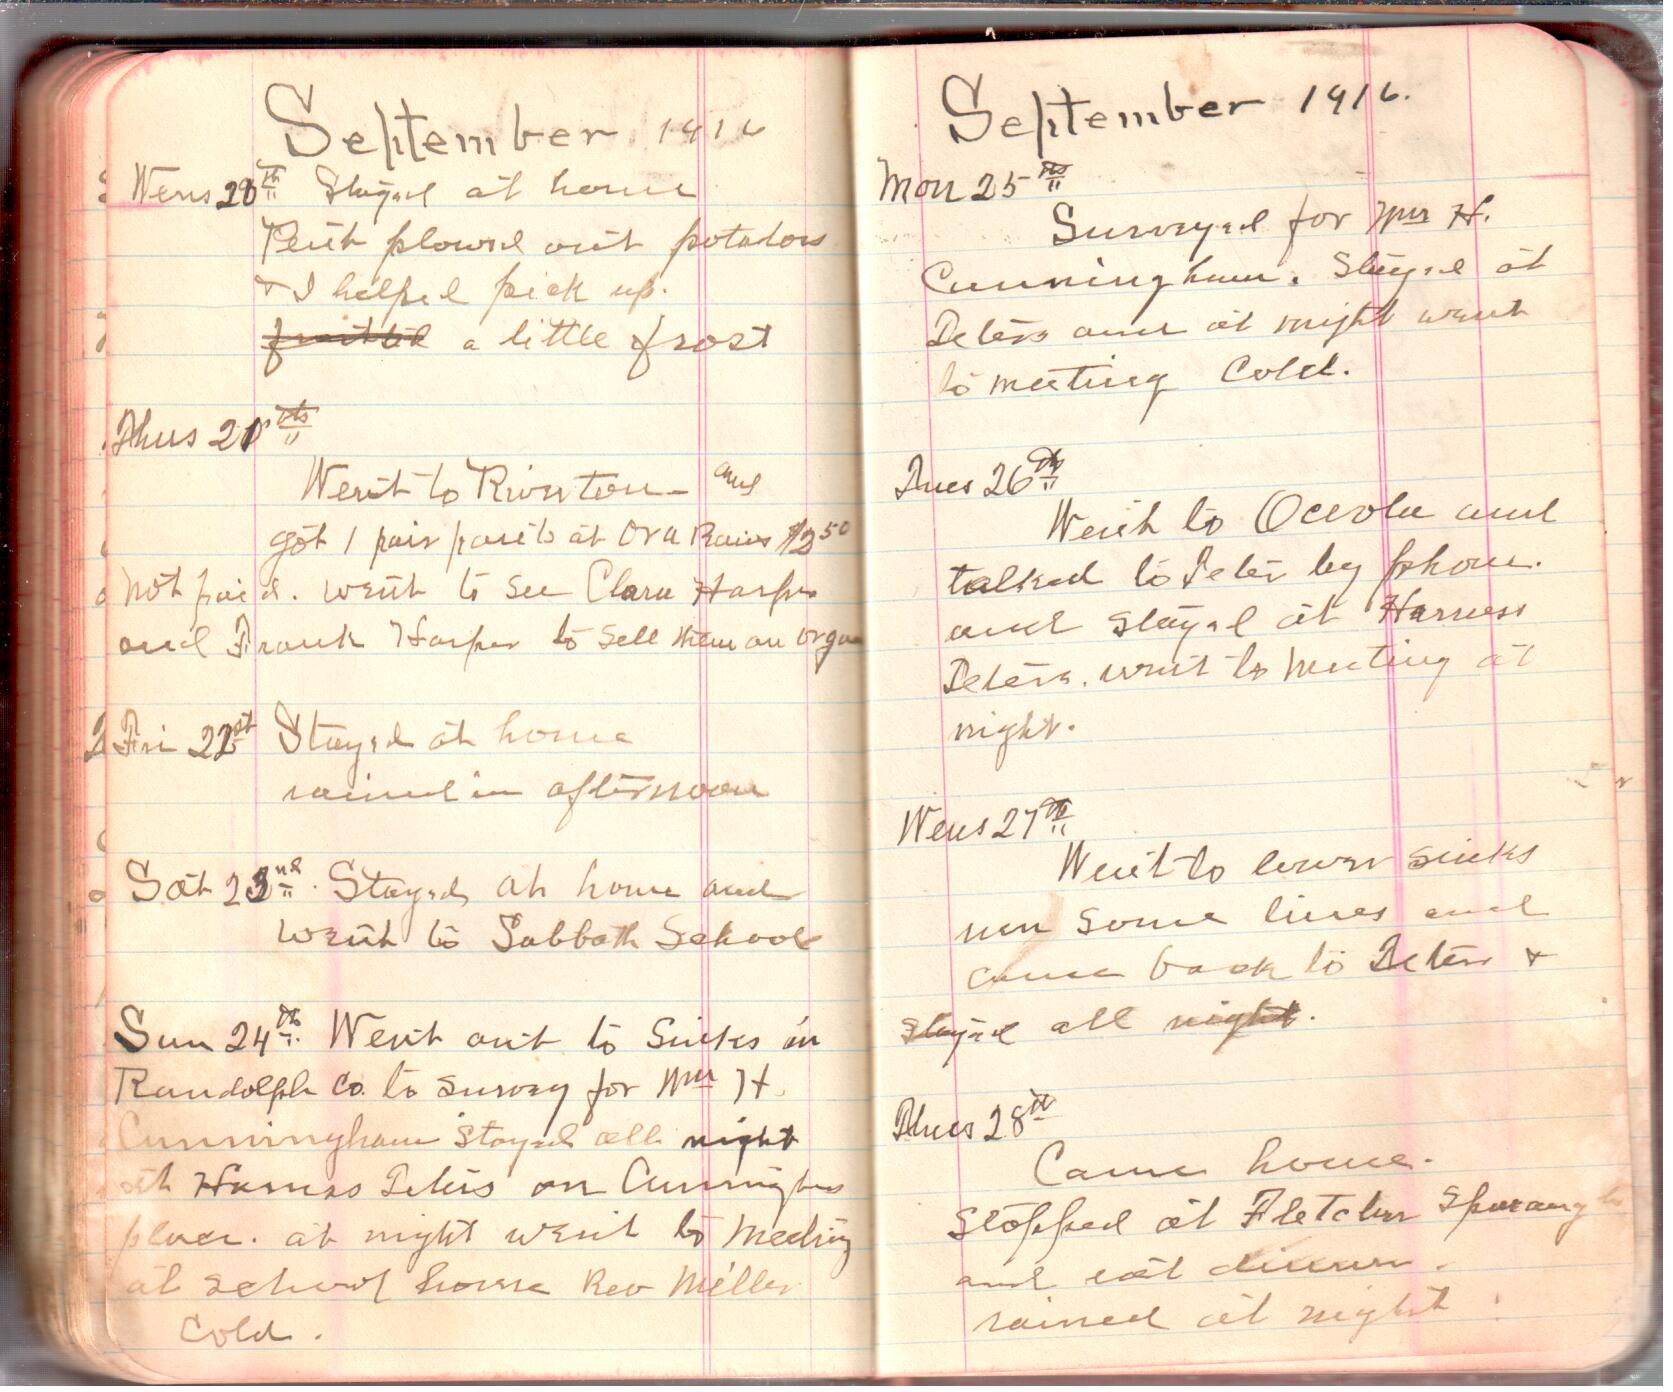 September 1916
Wens 20th Stayed at home
plowed out potatoes
& I helped pick up.
a little frost
Thus 21sts
Went to Riverton and
got 1 pair pants at Ora Rains $2 50
not paid. went to see Clara Harper
and Frank Harper to sell them an organ
Fri 22st Stayed at home
rained in afternoon
Sat 23nd. Stayed at home and
went to Sabbath School
Sun 24th. Went out to Sinks in
Randolph Co. to survey for Wm H.
Cunningham Stayed all night
at Harness Teters on Cunninghams
place. at night went to Meeting
at School house Rev Miller
Cold.
September 1916.
Mon 25th
Surveyed for Wm H.
Cunningham. Stayed at
Teters and at night went
to meeting Cold.
Tues 26th
Went to Oceola and
talked to Peter by phone.
and stayed at Harness
Teters. went to Meeting at
night.
Wens 27th
Went to lower Sinks
run some lines and
came back to Teters &
stayed all night.
Thues 28th
Came home.
Stopped at Fletcher
and eat dinner.
rained at night